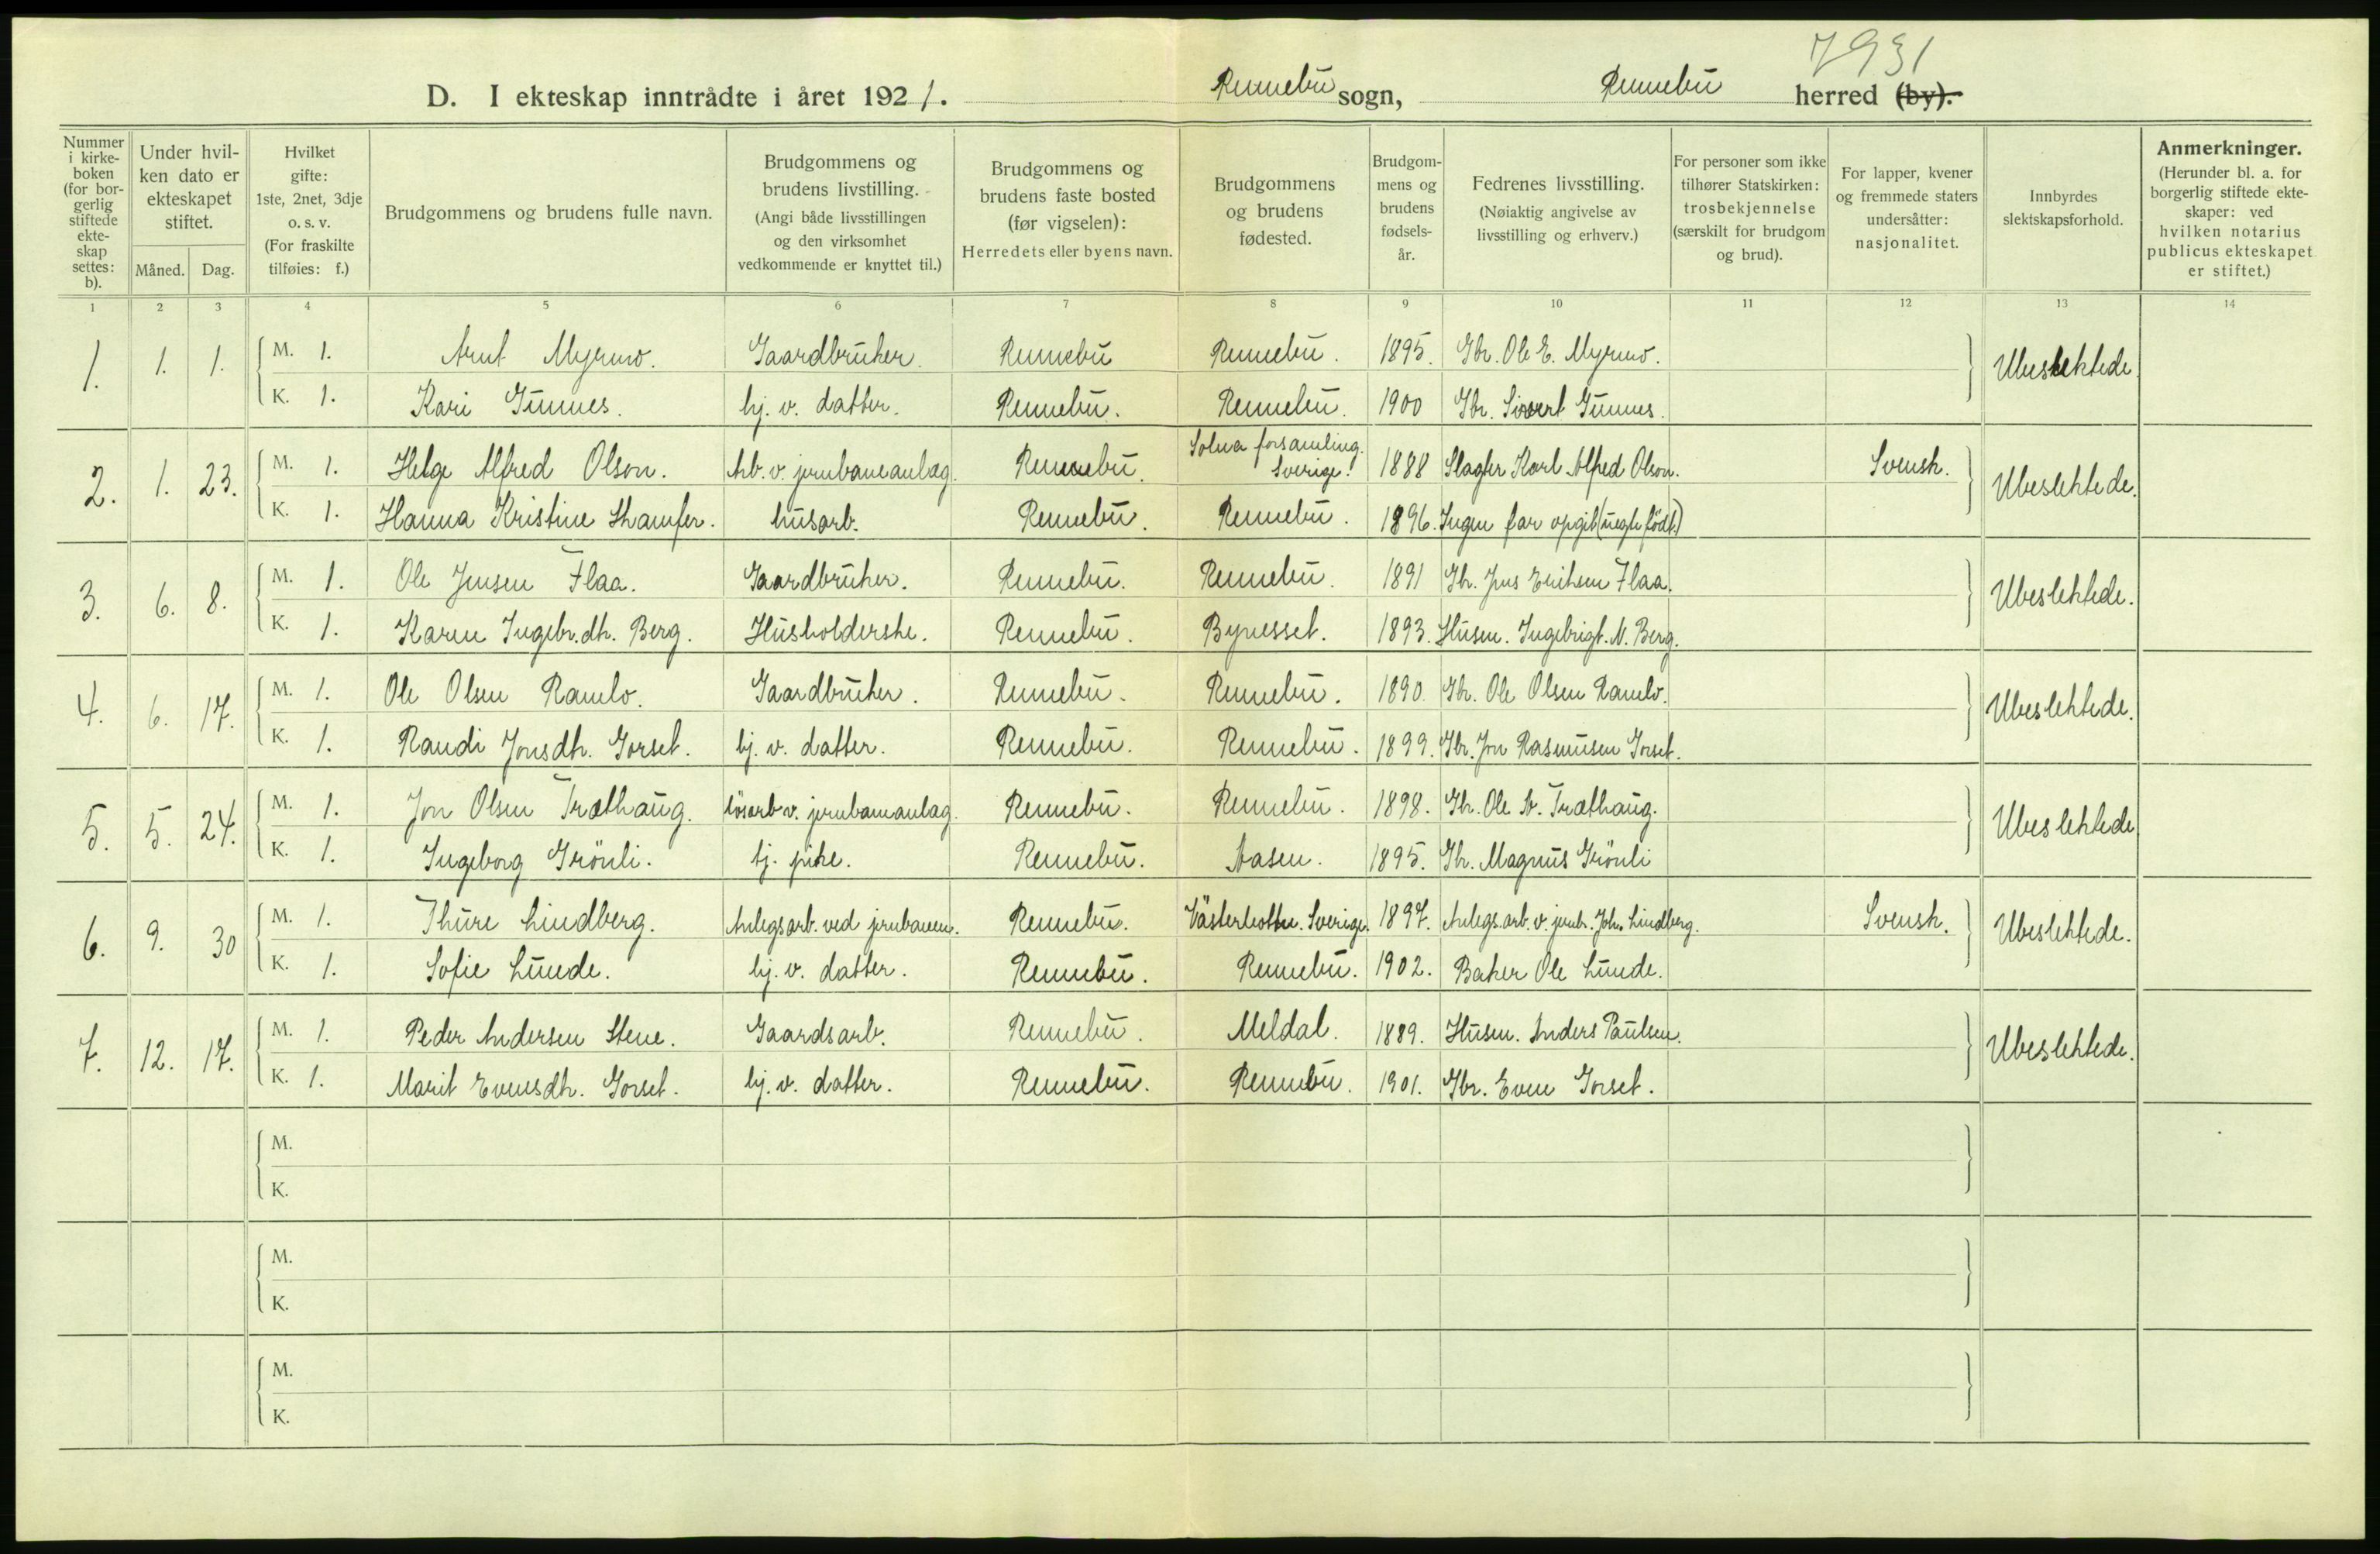 7931
D. I ekteskap inntrådte i året 1921. Rennebu sogn, Rennebu herred (by).
Nummer i kirkeboken (for borgerlig stiftede ekteskap settes: b).
Under hvilken dato er ekteskapet stiftet.
Måned. Dag.
Hvilket gifte: 1ste, 2net, 3dje o. s. v. (For fraskilte tilføies: f.)
Brudgommens og brudens fulle navn.
Brudgommens og brudens livstilling. (Angi både livsstillingen og den virksomhet vedkommende er knyttet til.)
Brudgommens og brudens faste bosted (før vigselen): Herredets eller byens navn.
Brudgommens og brudens fødested.
Brudgommens og brudens fødselsår.
Fedrenes livsstilling. (Nøiaktig angivelse av livsstilling og erhverv.)
For personer som ikke tilhører Statskirken: trosbekjennelse (særskilt for brudgom og brud).
For lapper, kvener og fremmede staters undersåtter: nasjonalitet.
Innbyrdes slektskapsforhold.
Anmerkninger. (Herunder bl. a. for borgerlig stiftede ekteskaper: ved hvilken notarius publicus ekteskapet er stiftet.)
1 2 3 4 5 6 7 8 9 10 11 12 13 14
1. 1. 1. M. 1. Arnt Myrmo. Gaardbruker. Rennebu Rennebu. 1895. Gbr. Ole E. Myrmo. Ubeslektede.
K. 1. Kari Gunnes. hj. v. datter. Rennebu. Rennebu. 1900 Gbr. Sivert Gunnes.
2. 1. 23. M. 1. Helge Alfred Olson. Arb. v. jernbaneanlæg. Rennebu. Solna forsamling. Sverige. 1888 Slagter Karl Alfred Olson. Svensk. Ubeslektede.
K. 1. Hanna Kristine Skamfer. husarb. Rennebu. Rennebu. 1896. Ingen far opgit (uegte födt.)
3. 6. 8. M. 1. Ole Jensen Flaa. Gaardbruker. Rennebu. Rennebu. 1891 Gb. Jens Eriksen Flaa. Ubeslektede.
K. 1. Karen Ingebr.dtr. Berg. Husholderske. Rennebu. Bynesset. 1893. Husm. Ingebrigt. N. Berg.
4. 6. 17. M. 1. Ole Olsen Ramlo. Gaardbruker. Rennebu. Rennebu. 1890. Gbr. Ole Olsen Ramlo. Ubeslektede.
K. 1. Randi Jonsdtr. Gorset. hj. v. datter. Rennebu. Rennebu. 1899. Gbr. Jon Rasmusen Gorset.
5. 5. 24. M. 1. Jon Olsen Træthaug. lösarb v. jernbaneanlæg. Rennebu. Rennebu. 1898. Gbr. Ole A. Træthaug. Ubeslektede
K. 1. Ingeborg Grönli. tj. pike. Rennebu. Aasen. 1895. Gbr. Magnus Grönli
6. 9. 30 M. 1. Thure Lindberg. Anlegsarb. ved jernbanen. Rennebu. Västerbotten. Sverige. 1897. Anlegs.arb. v. jernb. Joh. Lindberg. Svensk. Ubeslektede.
K. 1. Sofie Lunde. hj. v. datter. Rennebu. Rennebu. 1902. Baker Ole Lunde.
7. 12. 17. M. 1. Peder Andersen Stene. Gaardsarb. Rennebu. Meldal. 1889. Husm. Anders Paulsen. Ubeslektede.
K. 1. Marit Evensdtr. Gorset. hj. v. datter. Rennebu. Rennebu. 1901. Gbr. Even Gorset.
M.
K.
M.
K.
M.
K.